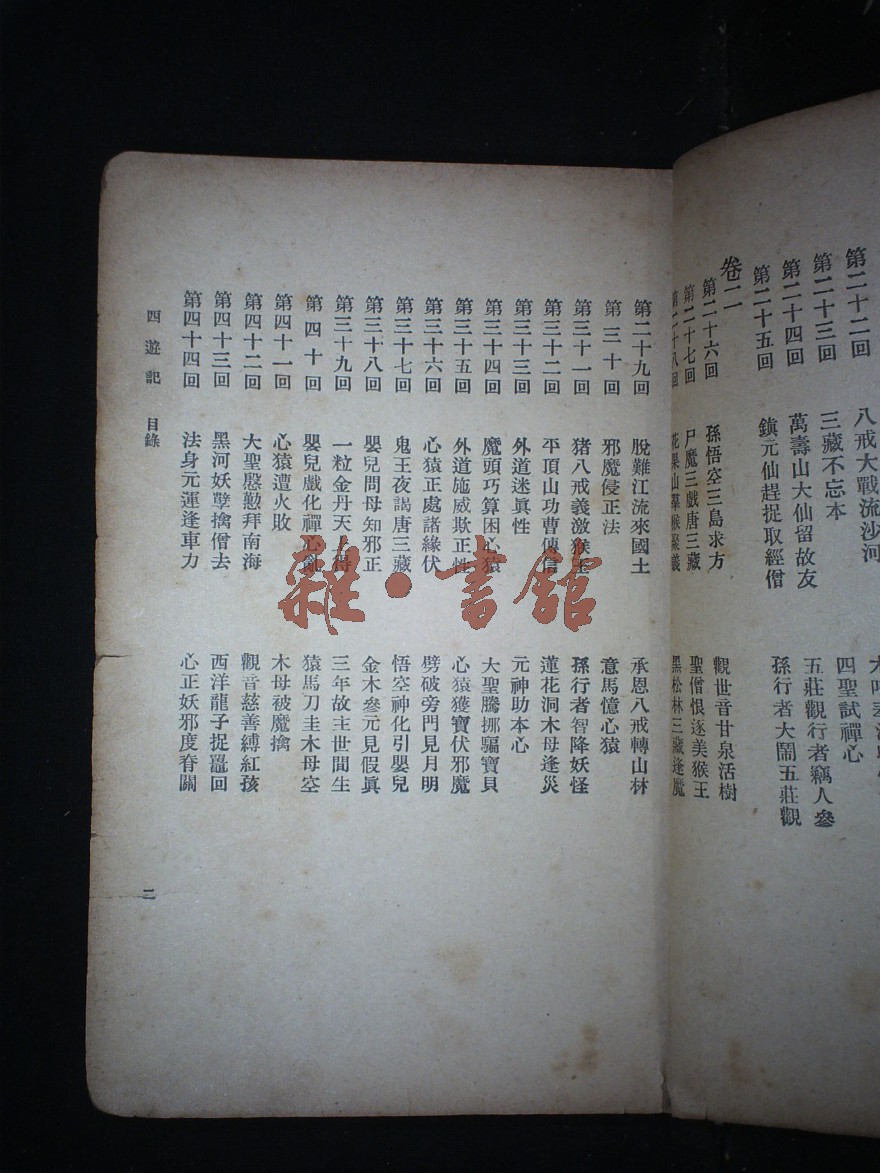 第二十二回 八戒大戰流沙河
第二十三回 三藏不忘本 四聖試禪心
第二十四回 萬壽山大仙留故友 五莊觀行者竊人參
第二十五回 鎮元仙趕捉取經僧 孫行者大鬧五莊觀
卷二
第二十六回 孫悟空三島求方 觀世音甘泉活樹
第二十七回 尸魔三戲唐三藏 聖僧恨逐美猴王
第二十八回 花果山羣猴聚義 黑松林三藏逢魔
第二十九回 脫難江流來國土 承恩八戒轉山林
第三十回 邪魔侵正法 意馬憶心猿
第三十一回 猪八戒義激猴王 孫行者智降妖怪
第三十二回 平頂山功曹傳信 蓮花洞木母逢災
第三十三回 外道迷眞性 元神助本心
第三十四回 魔頭巧算困心猿 大聖騰挪騙寶貝
第三十五回 外道施威欺正性 心猿獲寶伏邪魔
第三十六回 心猿正處諸緣伏 劈破旁門見月明
第三十七回 鬼王夜謁唐三藏 悟空神化引嬰兒
第三十八回 嬰兒問母知邪正 金木參元見假眞
第三十九回 一粒金丹天上得 三年故主世間生
第四十回 嬰兒戲化禪心亂 猿馬刀圭木母空
第四十一回 心猿遭火敗 木母被魔擒
第四十二回 大聖慇懃拜南海 觀音慈善縛紅孩
第四十三回 黑河妖孽擒僧去 西洋龍子捉鼉回
第四十四回 法身元運逢車力 心正妖邪度脊關
西遊記 目錄
二
雜·書館